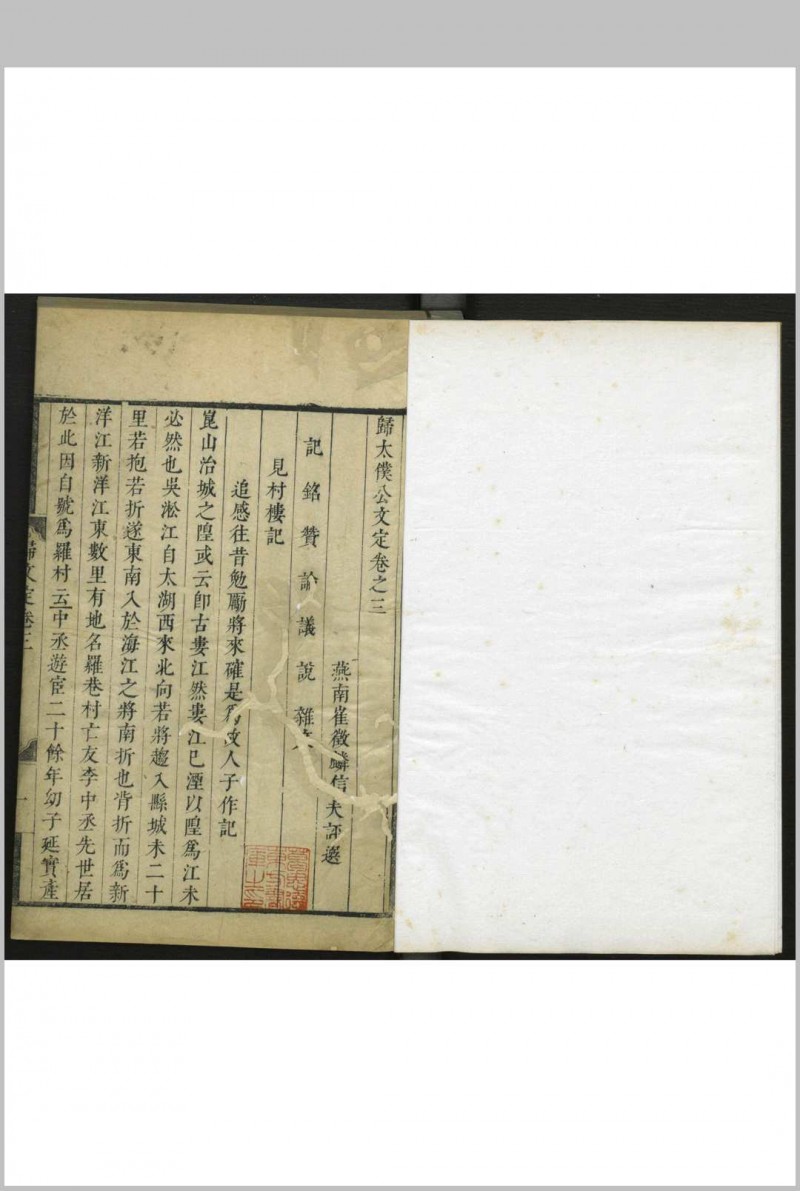 歸太僕公文定卷之三
燕南崔徵麟信夫評選
記銘贊論議說雜文
見村樓記
追感往昔勉勵將來確是為故人子作記
崑山治城之隍或云卽古婁江然婁江已湮以隍為江未
必然也吳淞江自太湖西來北向若將趨入縣城未二十
里若抱若折遂東南入於海江之將南折也背折而為新
洋江新洋江東數里有地名羅巷村亡友李中丞先世居
於此因自號為羅村云中丞遊宦二十餘年幼子延實產
歸文定卷三
一